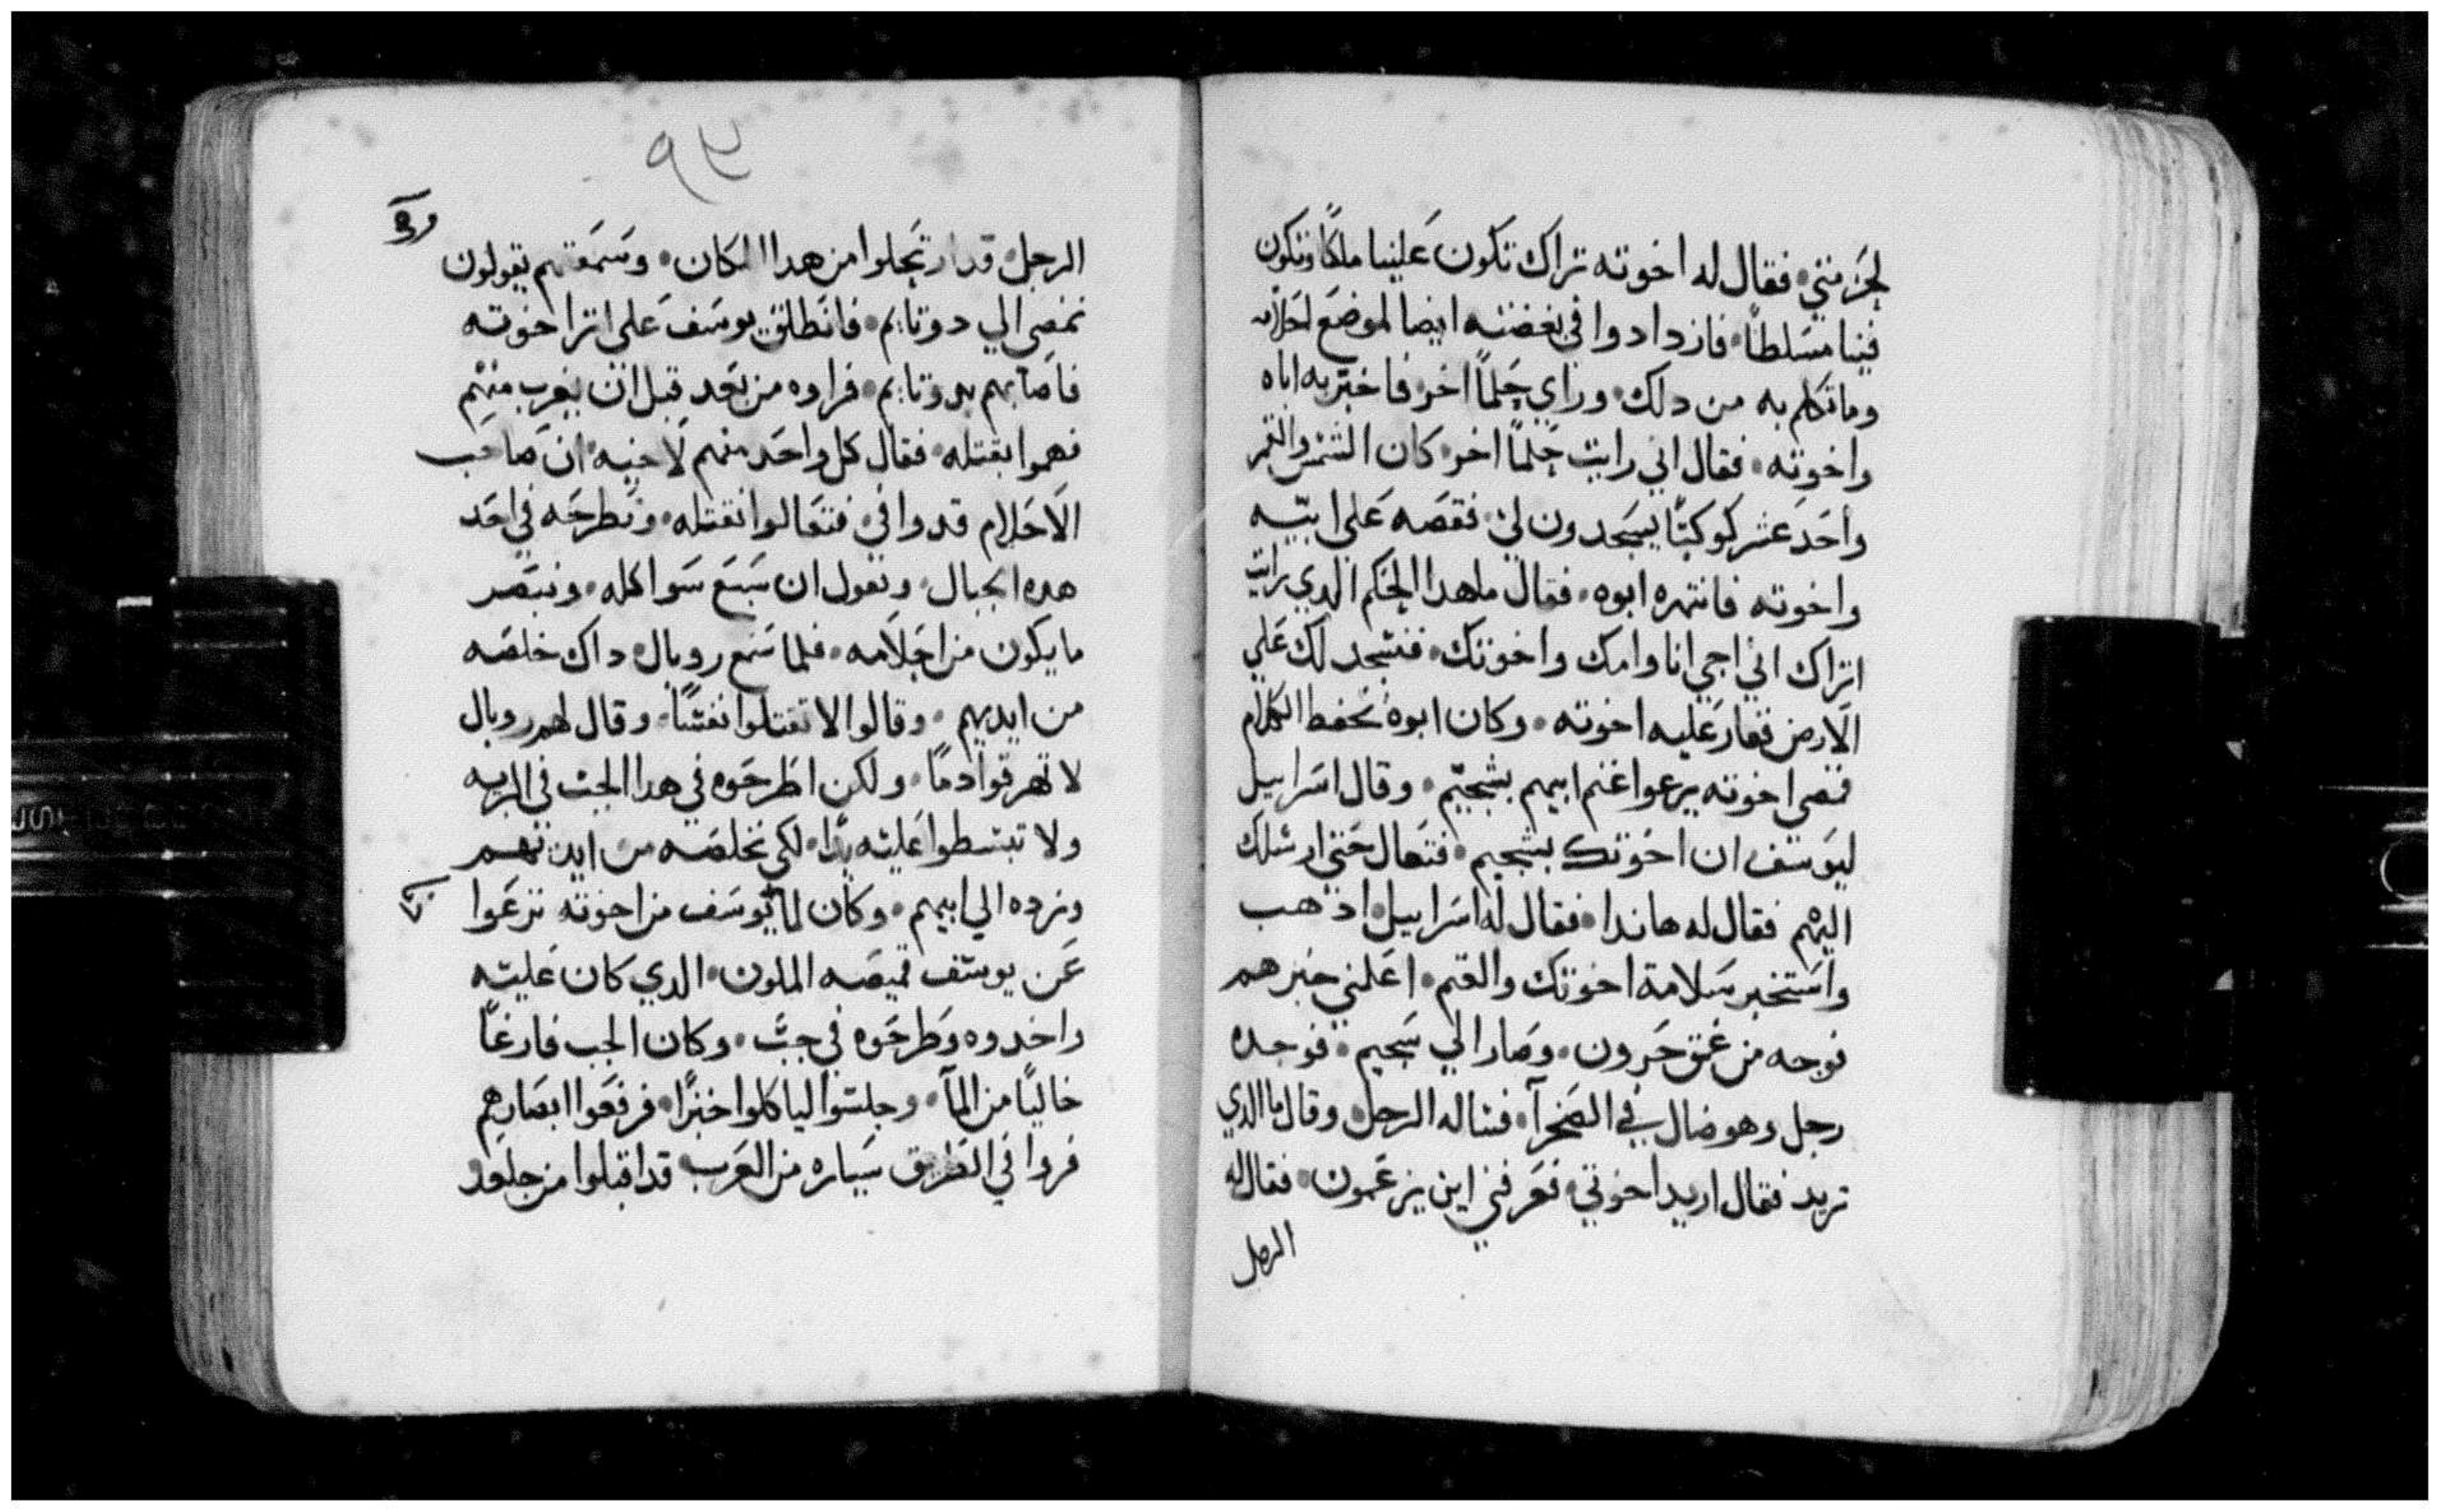 لجزمتي فقال له اخوته تراك تكون علينا ملكا وتكون
فينا مسلطا فازدادوا في بغضته ايضا لموضع احلامه
وما تكلم به من دلك وراي حلما اخر فاخبر به اباه
واخوته فقال اني رايت حلما اخر كان الشمس والقمر
واحد عشر كوكبا يسجدون لي فقصه على ابيه
واخوته فانتهره ابوه فقال ما هدا الحلم الدي رايت
اتراك اني اجي انا وامك واخوتك فنسجد لك علي
الارض فغار عليه اخوته وكان ابوه يحفط الكلام
فمضى اخوته يرعوا غنم ابيهم بشجيم وقال اسراييل
ليوسف ان اخوتك بشجيم فتعال حتي ارسلك
اليهم فقال له هاندا فقال له اسراييل ادهب
واستخبر سلامة اخوتك والغنم اعلمني خبرهم
فوجه من عمق حبرون وصار الي سجيم فوجده
رجل وهو ضال في الصحرا فساله الرجل وقال ما الدي
تريد فقال اريد اخوتي فعرفني اين يرعون فقال له
الرجل
٩٣
الرجل قد ارتحلوا من هدا المكان وسمعتهم يقولون
نمضي الي دوتايم فانطلق يوسف على اتر اخوته
فاصابهم بدوتايم فراوه من بعد قبل ان يقرب منهم
فهموا بقتله فقال كل واحد منهم لاخيه ان صاحب
الاحلام قد وافي فتعالوا نقتله ونطرحه في احد
هده الجبال ونقول ان سبع سوا اكله وننصر
ما يكون من احلامه فلما سمع روبال داك خلصه
من ايديهم وقالوا لا تقتلوا نفسا وقال لهم روبال
لا تهرقوا دما ولكن اطرحوه في هدا الجب في البريه
ولا تبسطوا عليه يدا لكي نخلصه من ايديهم
ونرده الي ابيهم وكان لما يوسف من اخوته نزعوا
عن يوسف قميصه الملون الدي كان عليه
واخدوه وطرحوه في جب وكان الجب فارغا
خاليا من الما وجلسوا لياكلوا خبزا فرفعوا ابصارهم
فروا في الطريق سياره من العرب قد اقبلوا من جلعد